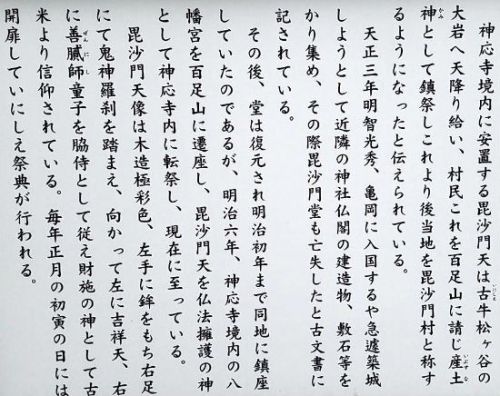 神応寺境内に安置する毘沙門天は古牛松ヶ谷の
大岩へ天降り給い、村民これを百足山に請じ産土
神として鎮祭しこれより後当地を毘沙門村と称す
るようになったと伝えられている。
天正三年明智光秀、亀岡に入国するや急遽築城
しようとして近隣の神社仏閣の建造物、敷石等を
かり集め、その際毘沙門堂も亡失したと古文書に
記されている。
その後、堂は復元され明治初年まで同地に鎮座
していたのであるが、明治六年、神応寺境内の八
幡宮を百足山に遷座し、毘沙門天を仏法擁護の神
として神応寺内に転祭し、現在に至っている。
毘沙門天像は木造極彩色、左手に鉾をもち右足
にて鬼神羅刹を踏まえ、向かって左に吉祥天、右
に善膩師童子を脇侍として従え財施の神として古
米より信仰されている。毎年正月の初寅の日には
開扉していにしえ祭典が行われる。